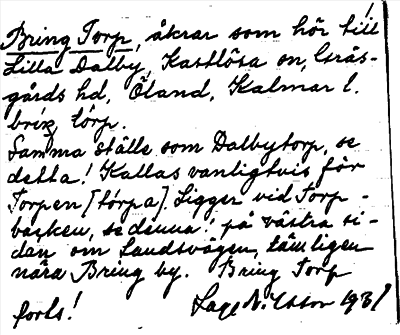 Bring Torp, åkrar som hör till
Lilla Dalby, Kastlösa sn, Gräs-
gårds hd, Öland, Kalmar l.
briŋ tórp.
Samma ställe som Dalbytorp, se
detta! Kallas vanligtvis för
Torpen [tórpa]. Ligger vid Torp-
backen, se denna! på västra si-
dan om landsvägen, tämligen
nära Bring by. Bring Torp
forts! Nilsson 1931